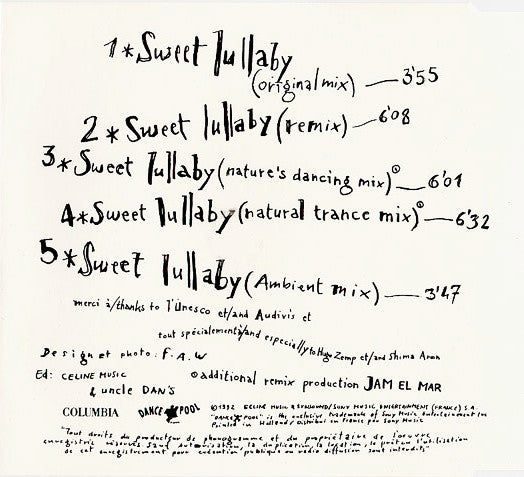 1*Sweet lullaby
(original mix) — 3'55
2*Sweet lullaby (remix) — 6'08
3*Sweet lullaby (nature's dancing mix)° — 6'01
4*Sweet lullaby (natural trance mix)° — 6'32
5*Sweet lullaby (Ambient mix) — 3'47
merci à/thanks to l'Unesco et/and Audivis et
tout spécialement à/and especially to Hugo Zemp et/and Shima Aron
Design et photo: F.A.W
Ed: CELINE MUSIC
& uncle DAN'S
°additional remix production JAM EL MAR
COLUMBIA DANCE POOL
©1992 CELINE MUSIC & SYNSOUND/SONY MUSIC ENTERTAINMENT (FRANCE) S.A.
"DANCE POOL" is the exclusive trademark of Sony Music Entertainment Inc
Printed in Holland/Distribution en france par Sony Music
"Tout droits du producteur de phonogramme et du propriétaire de l'oeuvre
enregistrée réservés sauf autorisation, la duplication, la location, le prêt ou l'utilisation
de cet enregistrement pour exécution publique ou radio diffusion sont interdits"